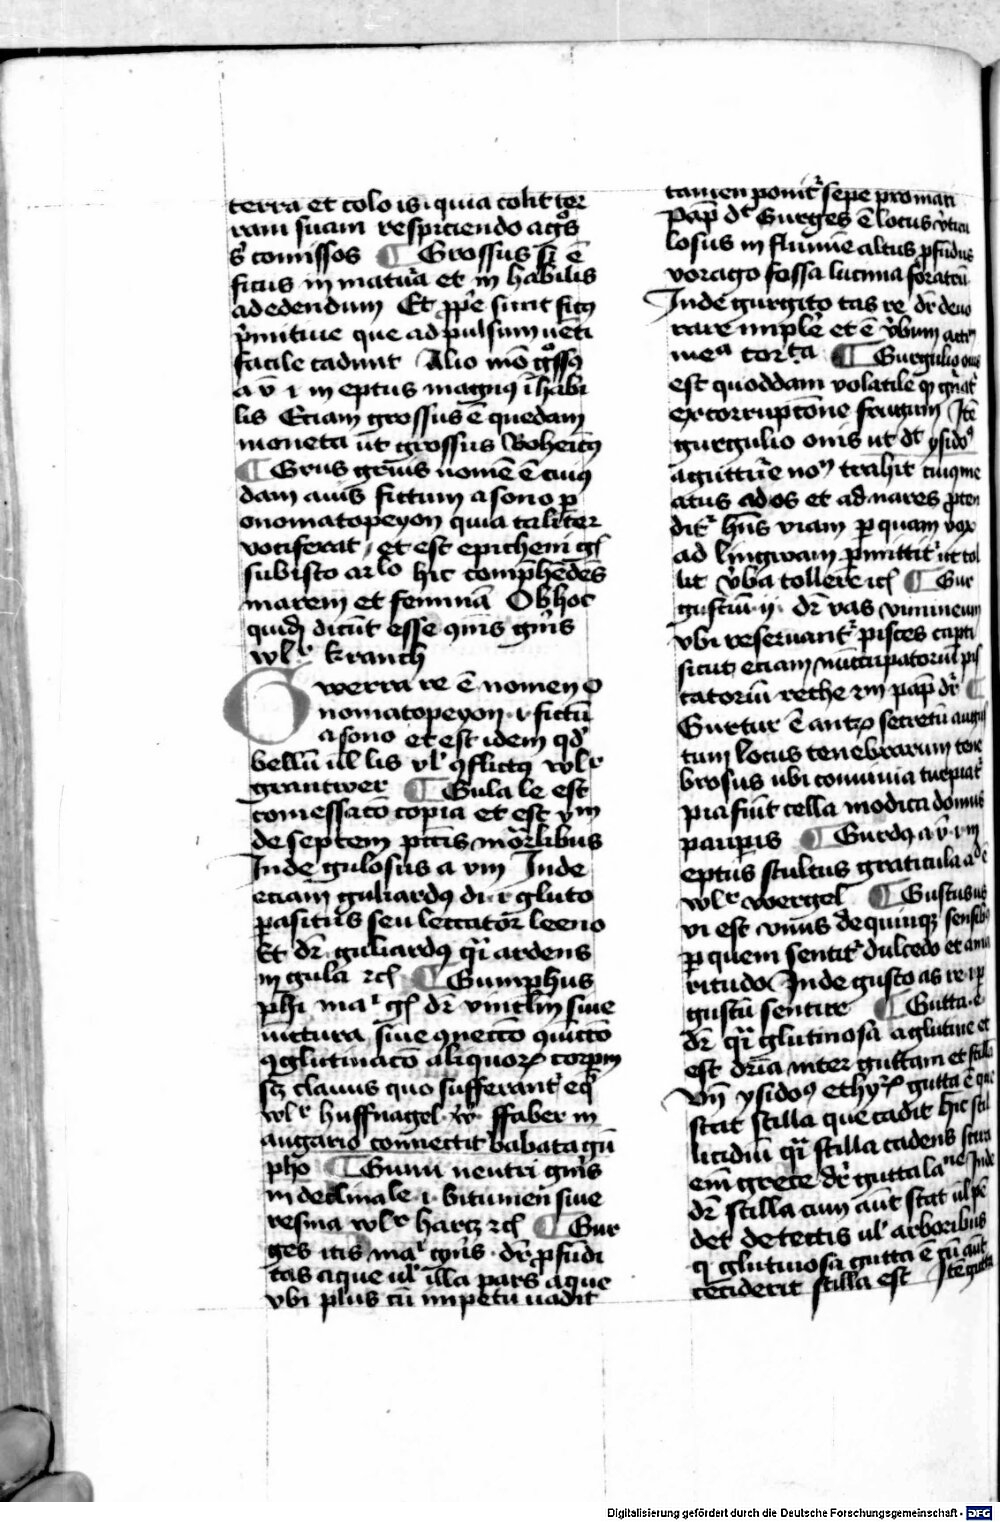 terra et colo is i quia colit ter
ram suam respiciendo agꝛos
sꝰ comissos ¶ Grossus si ē
ficus inmatura et in habilis
ad edendum Et ꝓpͥe sunt ficꝯ
pͥmitiue que ad pulsum uēti
facile cadunt Alio mō gͦssꝯ
a v̄ i in eptus magnꝯ īhabi
lis Eciam grossus ē quedam
moneta ut grossus Bohemꝯ
¶ Grus gruis nomē ē cuiꝯ
dam auis fictum a sono ꝑ
onomatopeyon quia taliter
vociferat et est epicheni gͥ
sub isto arlo hic comꝓhēdēs
marem et feminā Ob hoc
quidē dicūt esse ꝯnis gn̄is
wlr kranch
Gwerra re ē nomen o
nomatopeyon i fictū
a sono et est idem qd
bellū ul lis vl ꝯflictꝯ wlr
grantwer ¶ Gula le est
comessaco copia et est vnū
de septem pctīs mortlibus
Inde gulosus a um Inde
eciam guliardꝯ di i gluto
parasitus seu leccator leeno
Et dr̄ guliardꝯ qͥ ardens
in gula ꝛcͥ ¶ Gumphus
phi mar gͥ dr̄ vinclm̄ siue
iuctura siue ꝯnectō ꝯuictō
ꝯglutinacō aliquoꝝ corpm
sz clauus quo sufferant eqͥ
wlr huffnagel ỽ faber in
angario connectit babata gū
pho ¶ Gumi neutri gn̄is
indeclinale i bitumen siue
resina wlr hartz ꝛcͥ ¶ Gur
ges itis mar gn̄is dr̄ ꝓfūdi
tas aque ul illa pars aque
vbi plus cū impetu uadit
tamen ponit sepe pro mari
Pap dt Gurges ē locus vtiu
losus in flumīe altus ꝓfūdus
vorago fossa lucinna
Inde gurgito tas re dr̄ deuo
rare imple et ē ỽbum acti
meͣ torta ¶ Gurgulio onis
est quoddam volatile qͥ gn̄at
ex corrupcōne frugum Itē
gurgulio onis ut dt ysidoꝰ
a gutture nom̄ trahit cuiꝯ me
atus ad os et ad nares ꝓten
dit hn̄s viam ꝑ quam vox
ad lingwam ꝑmittit ut col
lit ỽba tollere ꝛcͥ ¶ Gur
gustiū ij dr̄ vas vimineum
vbi reseruant pisces capti
sicut eciam nūccupatoriū pis
catoriū rethe rm pap dr̄ ¶
Gurtur ē antꝝ secretū angus
tum locus tenebrarum tene
brosus ubi conuiuia turpiat
pia siūt cella modica domus
pauperis ¶ Gurdꝯ a v̄ i in
eptus stultus graticula a d e
wlr wergel ¶ Gustus us
vi est vnus de quinqꝫ sensibꝯ
ꝑ quem sentit dulcedo et ama
ritudo Inde gusto as re i ꝑ
gustū sentire ¶ Gutta e
dr̄ qͥ glutinosa a glutine et
est dr̄ia inter guttam et stilla
Vn̄ ysidoꝰ ethyꝝ gutta ē que
stat stilla que cadit hic stil
licidiū qͥ stilla cadens stiria
em̄ grece dr̄ gutta la ne Inde
dr̄ stilla cum aūt stat ul pē
det de tectis ul arboribus
qͥ glutinosa gutta ē cū aūt
ceciderit stilla est Itē gutta
Digitalisierung gefördert durch die Deutsche Forschungsgemeinschaft - DFG